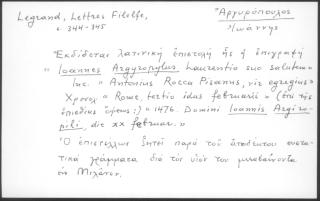 Legrand, Lettres Filelfe,
σ. 344-345
"Ἀργυρόπουλος
Ἰωάννης
"Ἐκδίδεται λατινική ἐπιστολή ἧς ἡ ἐπιγραφή
"Ioannes Argyropylus Laurentio suo salutem"
Inc. "Antonius Rocca Pisanus, vir egregius"
Χρονολ "Rome, tertio idus februarii" (ἐπί τῆς
1476. Domini Ioannis Argiro-
poli, die xx februar."
Ὁ ἐπιστέλλων ζητεῖ παρά τοῦ ἀποδέκτου συστα-
τικά γράμματα διά τόν υἱόν του μεταβαίνοντα
εἰς Μιλάνον.